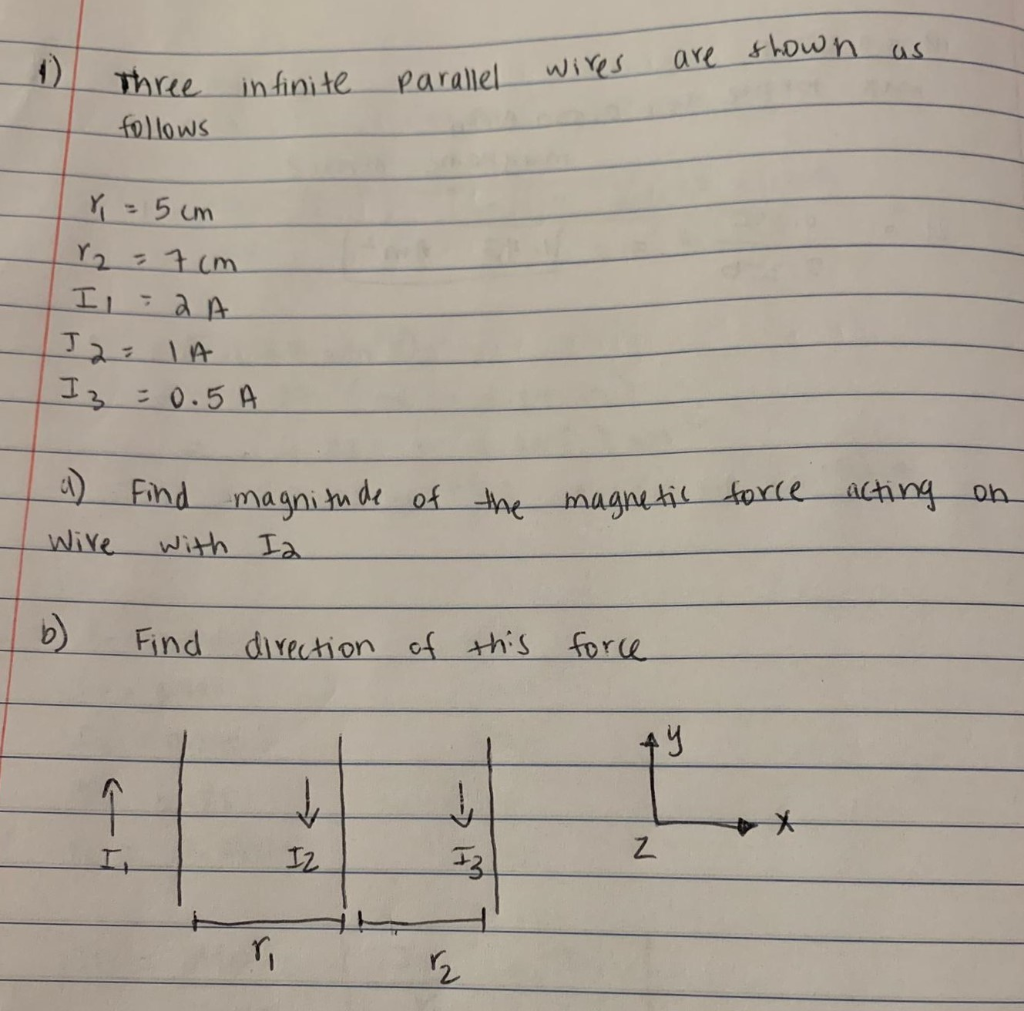 1) Three infinite parallel wires are shown as
follows
r1 = 5 cm
r2 = 7 cm
I1 = 2 A
I2 = 1 A
I3 = 0.5 A
a) Find magnitude of the magnetic force acting on
wire with I2
b) Find direction of this force
y
x
z
I1
I2
I3
r1
r2